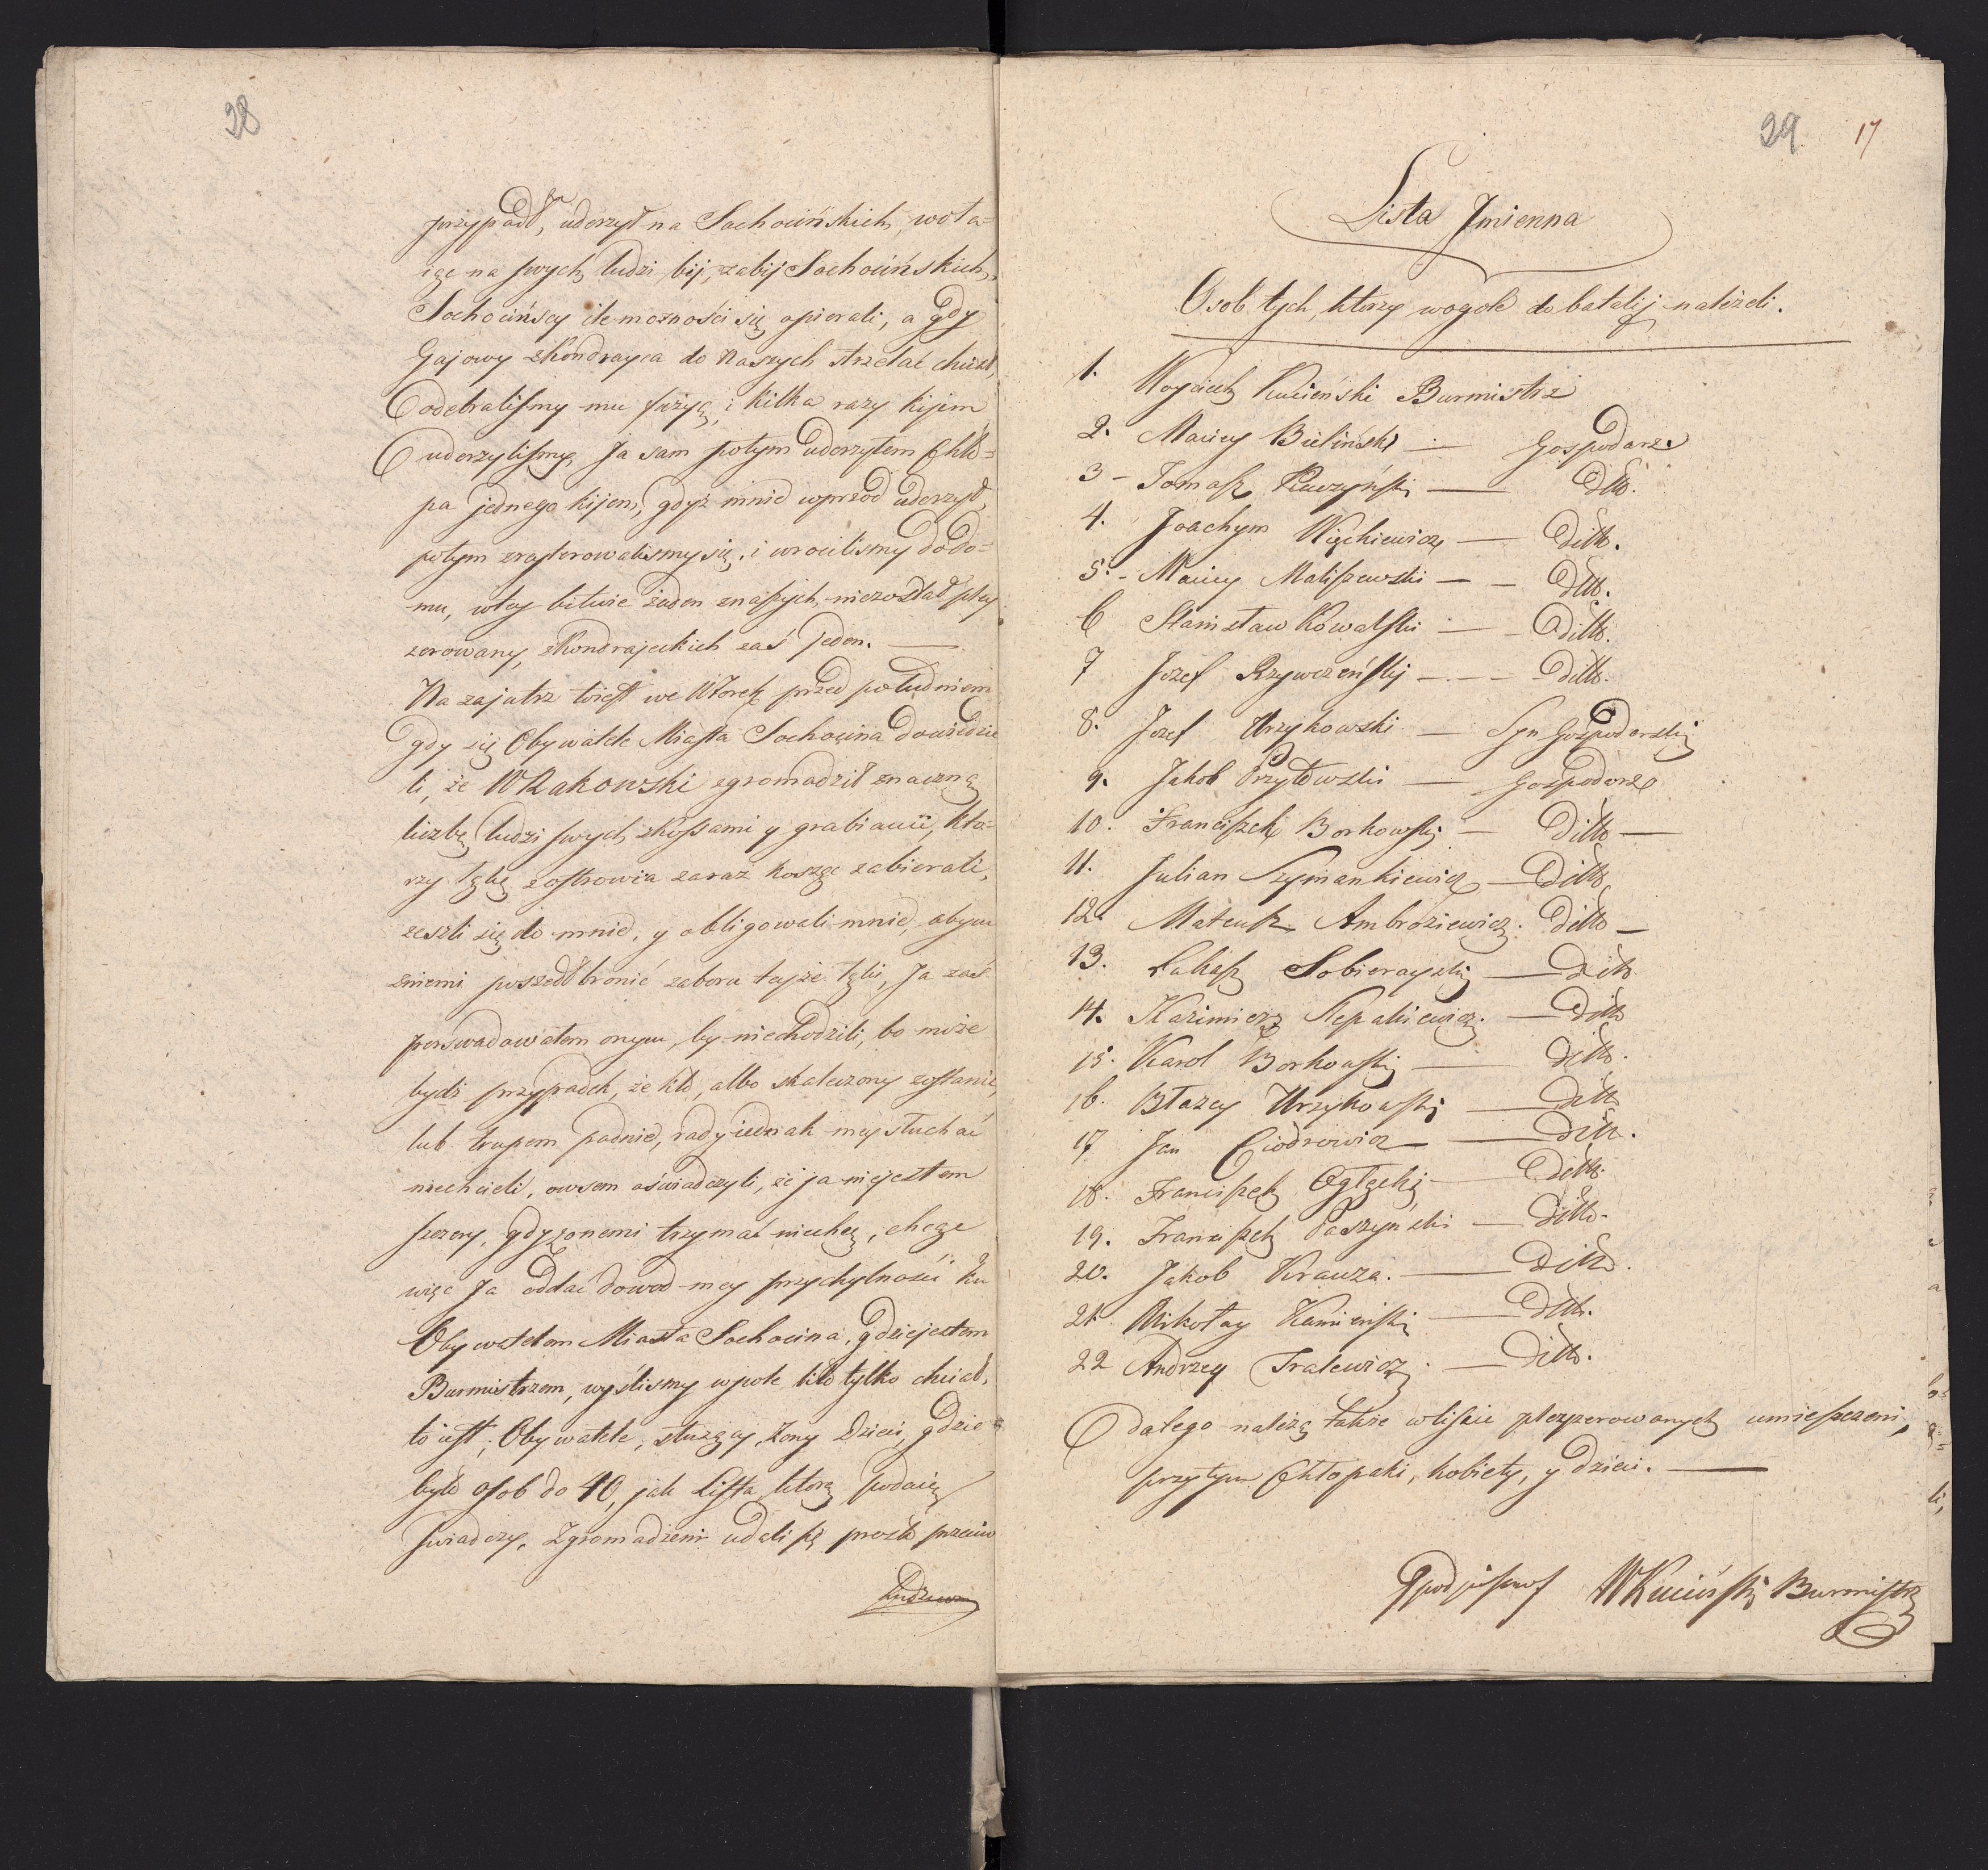 28
przypadł, uderzył na Sochocińskich, woła=
iąc na swych ludzi bij, zabij Sochocińskich,
Sochocińscy ile możności się opierali, a gdy
Gajowy zKondrayca do Naszych strzelać chciał,
odebralismy mu fuzyą, i kilka razy kijem
uderzylismy, Ja sam potym uderzyłem Chło=
pa jednego kijem, gdyż mnie wprzód uderzył,
potym zreyterowalismy się, i wrocilismy do do=
mu, wtey bitwie żaden znaszych niezostał pley
zerowany, zKondrajeckich zaś jeden. —
Na zajutrz toiest we Wtorek przed południem
gdy się Obywatele Miasta Sochocina dowiedzie
li, że WRakowski zgromadził znaczną
liczbę ludzi swych zkossami y grabiami, kto=
rzy łąkę zostrowia zaraz kosząc zabierali,
zeszli się do mnie, y obligowali mnie, abym
zniemi poszedł bronić zaboru teyże łąki, Ja zaś
perswadowałem onym, by niechodzili, bo może
bydź przypadek, że kto, albo skaleczony zostanie,
lub trupem padnie, rady iednak mey słuchać
niechcieli, owsem oświadczyli, że ja niejestem
szczery, gdyż onemi trzymać niechcę, chcąc
więc Ja oddać dowod mey przychylności ku
Obywatelom Miasta Sochocina, gdziejestem
Burmistrzem, wyslismy wpole kto tylko chciał,
to iest; Obywatele, służący, żony Dzieci, gdzie
było osob do 40, jak Lista którą podaię
swiadczy, Zgromadzeni udali się prosto przeciw
29 17
Lista Jmienna
Osob tych, ktorzy wogole do batalij należeli.
1. Woyciech Kucieński Burmistrz
2. Maciey Bieliński — Gospodarz
3 - Tomasz Kuczyński — Ditto.
4. Joachym Więckiewicz — Ditto.
5. - Maciey Maliszewski — — Ditto.
6 Stanisław Kowalski — — Ditto.
7 Jozef Rzywczeńskij — — Ditto.
8. Jozef Urzykowski — Syn Gospodarski
9. Jakob Przyłowski — Gospodarz
10. Franciszek Borkowski — Ditto —
11. Julian Szymankiewicz — Ditto
12. Mateusz Ambroziewicz. Ditto —
13. Łukasz Sobierayski — Ditto
14. Kazimierz Slepakiewicz. — Ditto
15. Karol Borkowski — Ditto.
16. Błazey Urzykowski — Ditto
17 Jan Ciodrowicz — Ditto.
18. Franciszek Ogłęcki — Ditto.
19. Franciszek Paszyński — Ditto.
20. Jakob Krauza. — Ditto.
21. Mikołay Kamiński — Ditto.
22 Andrzey Fralewicz. — Ditto.
dotego należą także wliscie pleyzerowanych umieszczeni,
przytym Chłopaki, kobiety, y dzieci. —
WKucieński Burmistrz